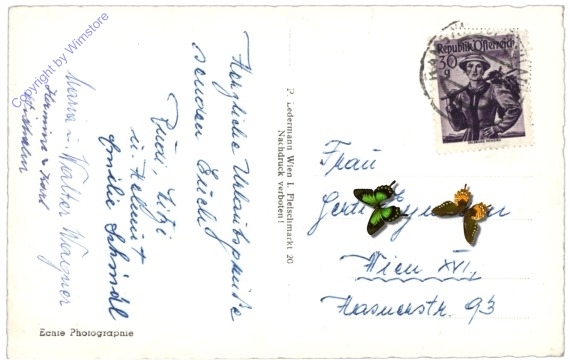 Copyright by Wimstore
Herzliche Urlaubsgrüße
senden Euch
Rudi, Litzi
u. Helmut
Amilie Schmidl
Maria u. Walter Wagner
Hermine u. Karl
P. Ledermann Wien I. Fleischmarkt 20
Nachdruck verboten!
Republik Österreich
30
g
Frau
Wien XVI,
Hasnerstr. 93
Echte Photographie